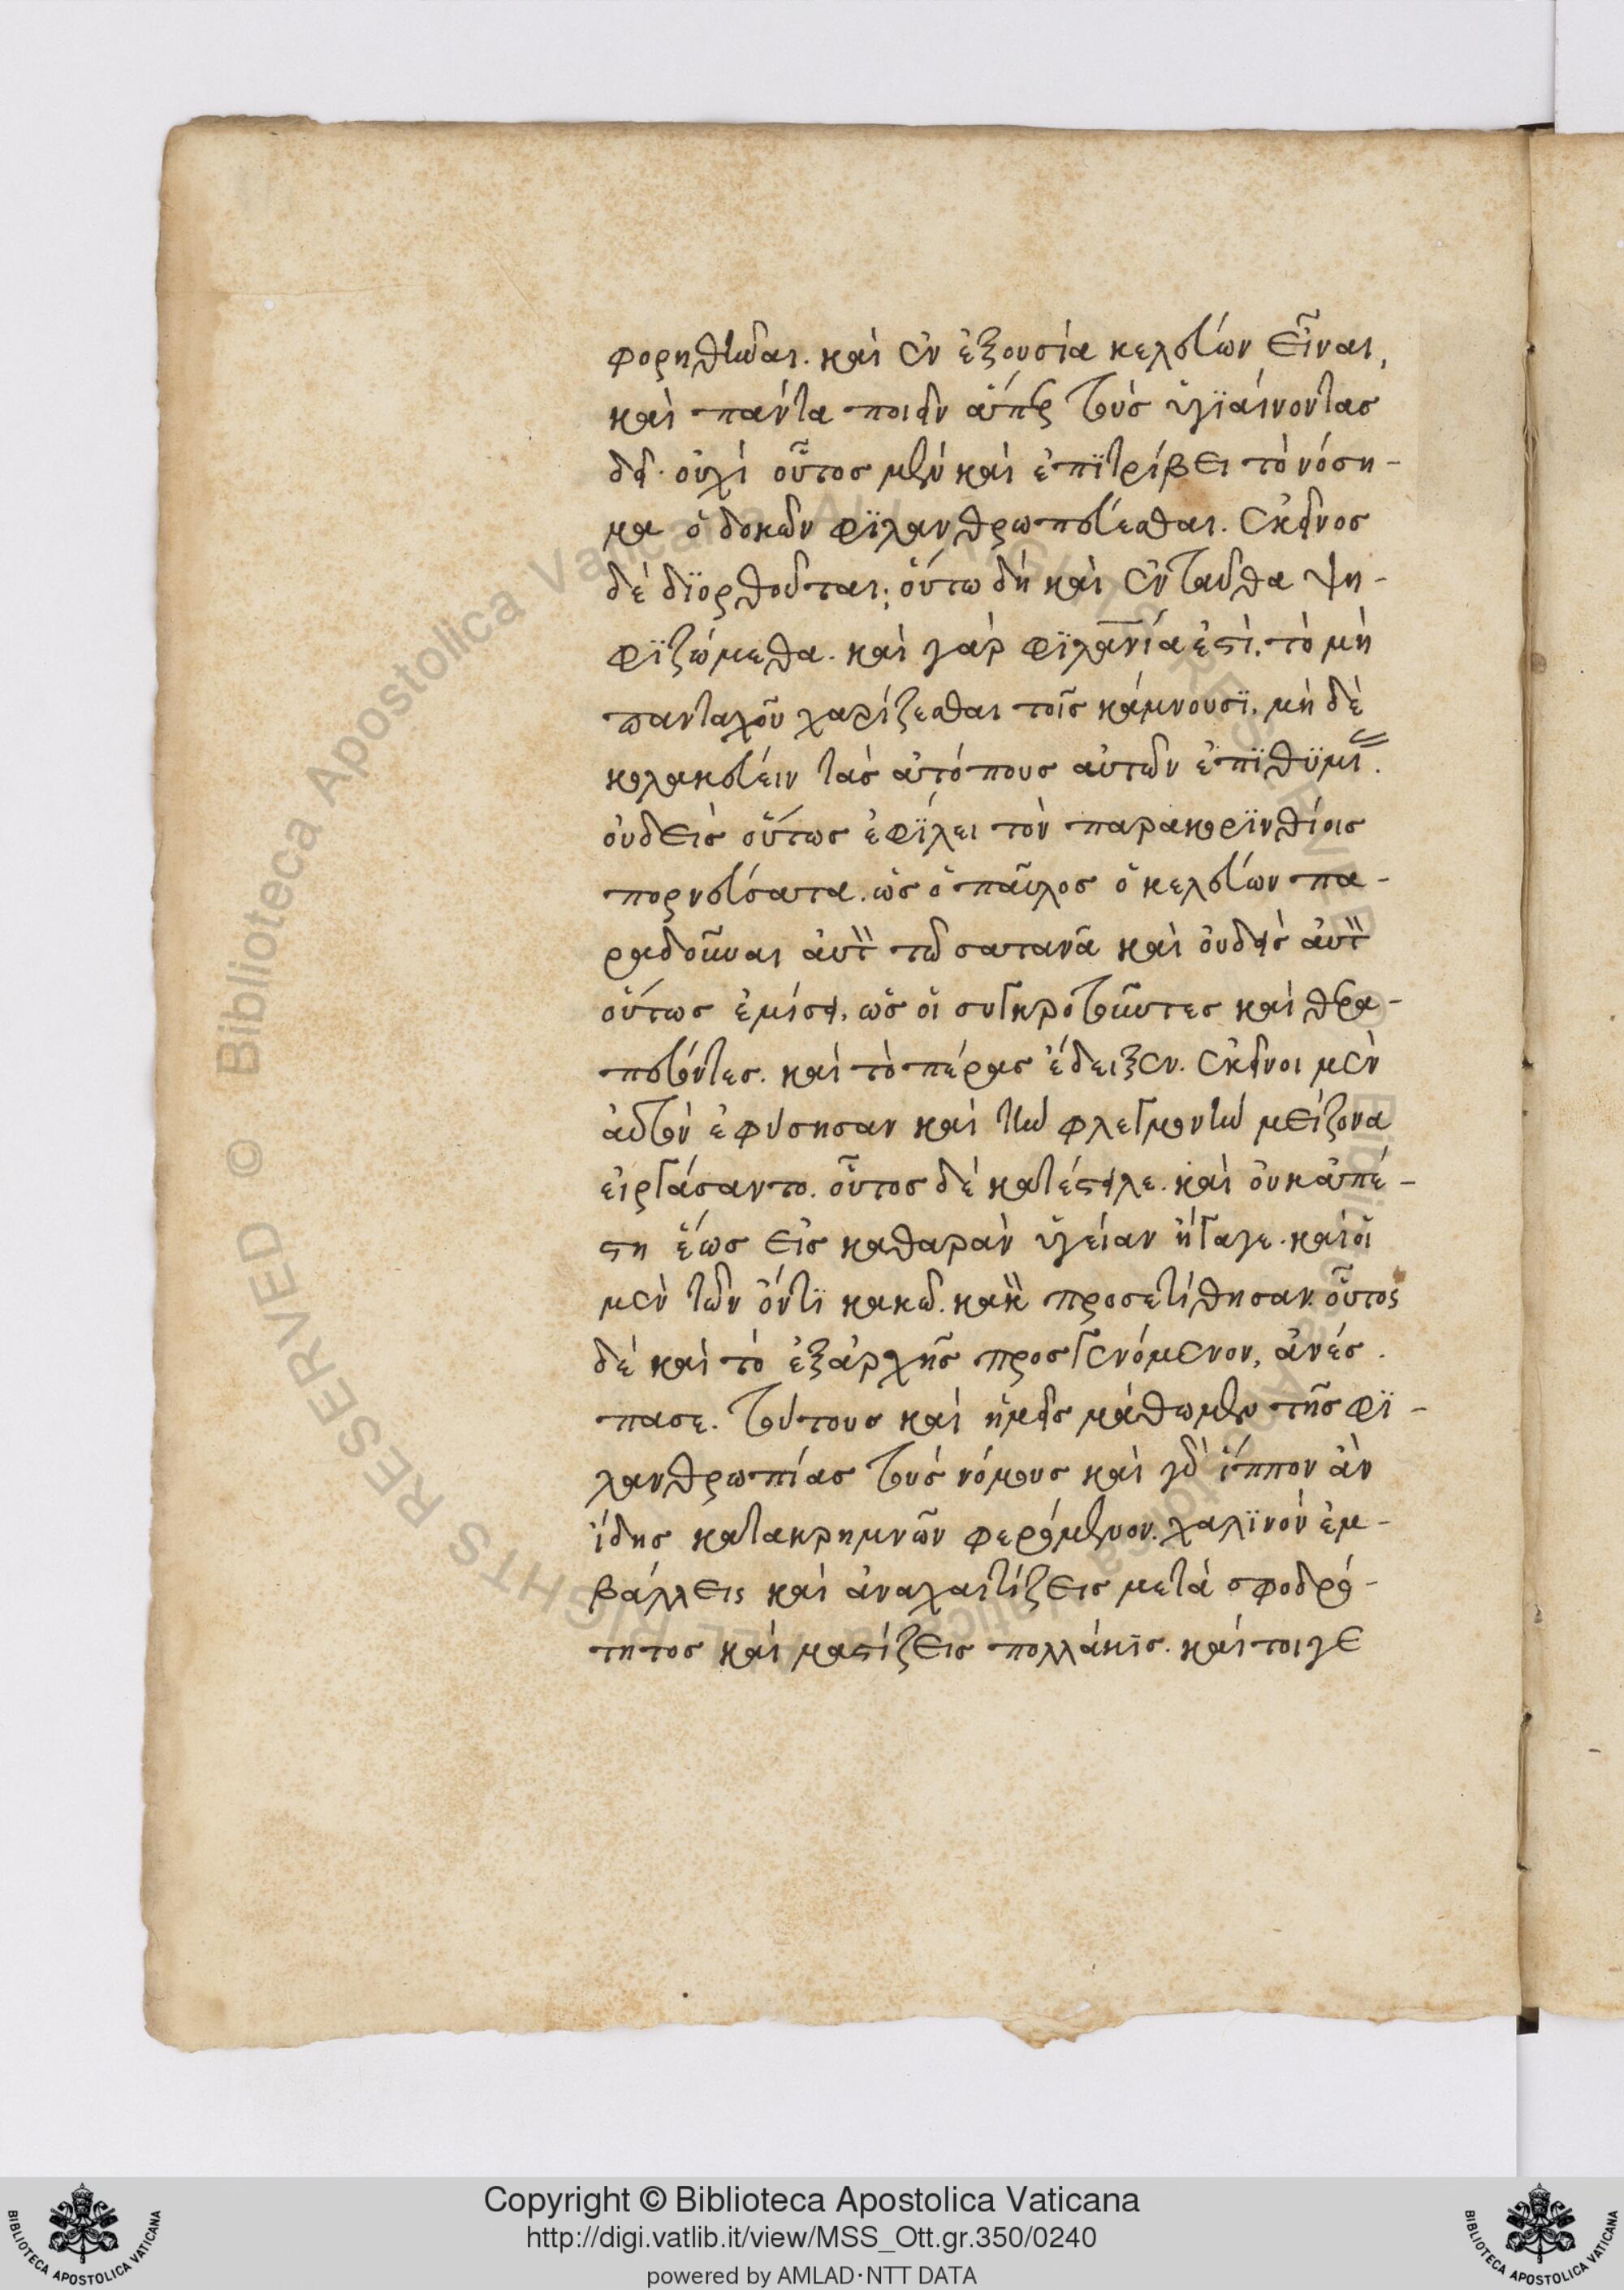 φορηθῆναι. καὶ ἐν ἐξουσία κελεύων εἶναι,
καὶ πάντα ποιεῖν ἅπερ τοὺς ὑγϊαίνοντας
δεῖ. οὐχὶ οὗτος μὲν καὶ ἐπϊτρίβει τὸ νόση-
μα ὁ δοκῶν φϊλανθρωπεύεσθαι. ἐκεῖνος
δὲ δϊορθοῦται; οὕτω δὴ καὶ ἐνταῦθα ψη-
φϊζώμεθα. καὶ γὰρ φϊλανία ἐστὶ. τὸ μὴ
πανταχοῦ χαρίζεσθαι τοῖς κάμνουσϊ. μὴ δὲ
κολακεύειν τὰς ἀτόπους αὐτῶν ἐπϊθϋμι.
οὐδεὶς οὕτως ἐφϊλει τὸν παρακορϊνθίοις
πορνεύσαντα. ὡς ὁ παῦλος ὁ κελεύων πα-
ραδοῦναι αὐτ τῶ σατανᾶ καὶ οὐδεὶς αὐτ
οὕτως ἐμίσει, ὡς οἱ συγκροτοῦντες καὶ θερα-
πεύοντες. καὶ τὸ πέρας ἔδειξεν. ἐκεῖνοι μὲν
αὐτὸν ἐφύσησαν καὶ τὴν φλεγμονὴν μείζονα
εἰργάσαντο. οὗτος δὲ κατέστειλε. καὶ οὐκ ἀπέ-
στη ἕως εἰς καθαρὰν ὑγείαν ἤγαγε. καὶ οἱ
μὲν τῶν ὄντϊ κακῶ. κακ προσετίθησαν. οὗτος
δὲ καὶ τὸ ἐξἀρχῆς προσγενόμενον, ἀνές.
πασε. τούτους καὶ ἡμεῖς μάθωμεν τῆς φϊ-
λανθρωπίας τοὺς νόμους καὶ γὰρ ἵππον ἂν
ἴδης κατακρημνῶν φερόμενον. χαλϊνὸν ἐμ-
βάλλεις καὶ ἀναχαιτίζεις μετὰ σφοδρό-
τητος καὶ μαστίζεις πολλάκϊς. καίτοιγε
Copyright © Biblioteca Apostolica Vaticana
http://digi.vatlib.it/view/MSS_Ott.gr.350/0240
powered by AMLAD·NTT DATA
BIBLIOTECA APOSTOLICA VATICANA
BIBLIOTECA APOSTOLICA VATICANA